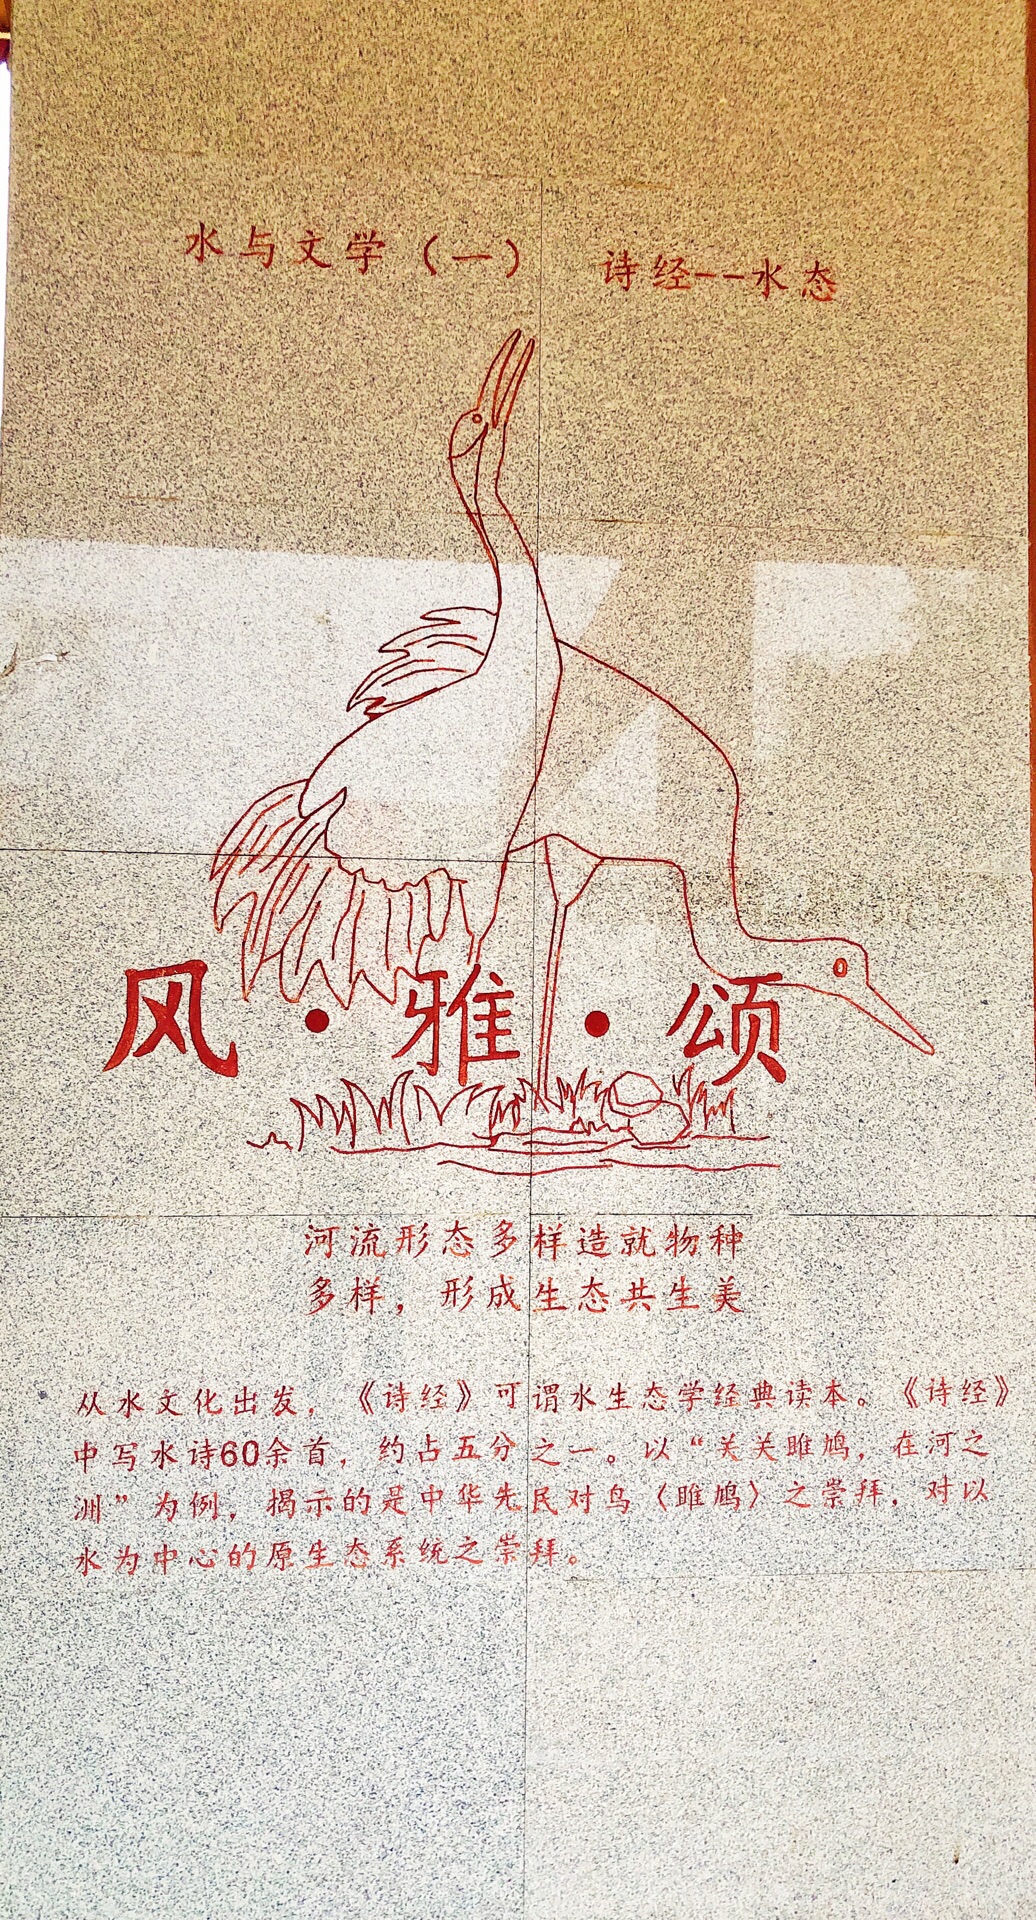 水与文学（一） 诗经--水态
风·雅·颂
河流形态多样造就物种
多样，形成生态共生美
从水文化出发，《诗经》可谓水生态学经典读本。《诗经》
中写水诗60余首，约占五分之一。以“关关雎鸠，在河之
洲”为例，揭示的是中华先民对鸟〈雎鸠〉之崇拜，对以
水为中心的原生态系统之崇拜。